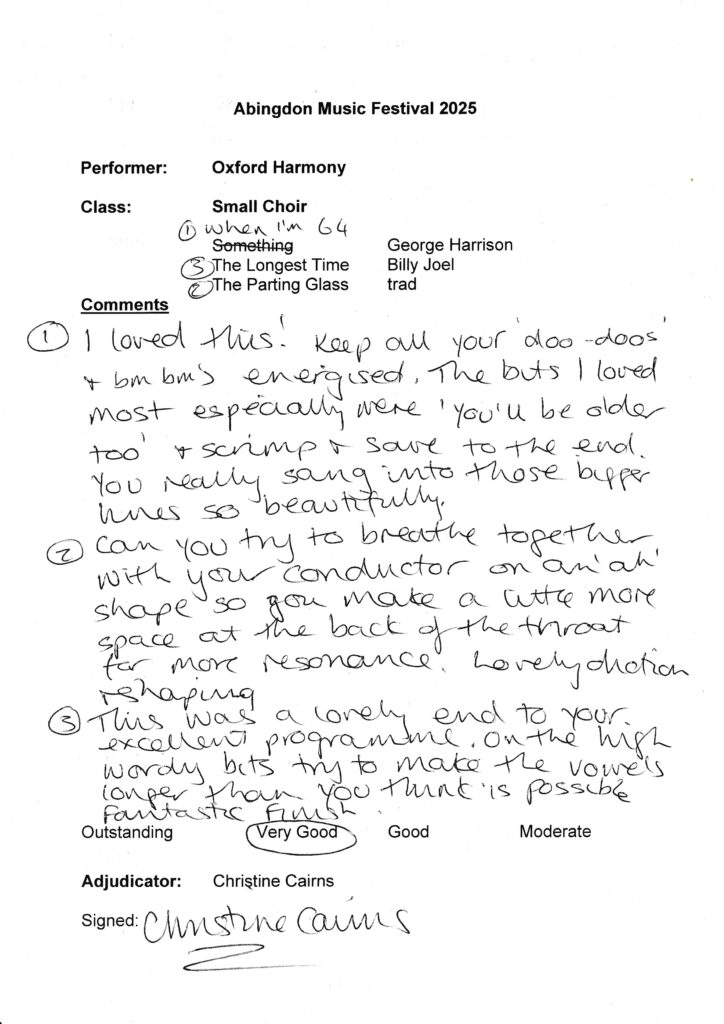 Abingdon Music Festival 2025
Performer: Oxford Harmony
Class: Small Choir
① When I'm 64
Something George Harrison
③ The Longest Time Billy Joel
② The Parting Glass trad
Comments
① I loved this! Keep all your 'doo-doos'
+ bm bm's energised. The bits I loved
most especially were 'you'll be older
too' + scrimp + save to the end.
You really sang into those bigger
lines so beautifully.
② Can you try to breathe together
with your conductor on an 'ah'
shape so you make a little more
space at the back of the throat
for more resonance. Lovely diction
reshaping
③ This was a lovely end to your
excellent programme. On the high
wordy bits try to make the vowels
longer than you think is possible
Fantastic finish.
Outstanding Very Good Good Moderate
Adjudicator: Christine Cairns
Signed: Christine Cairns